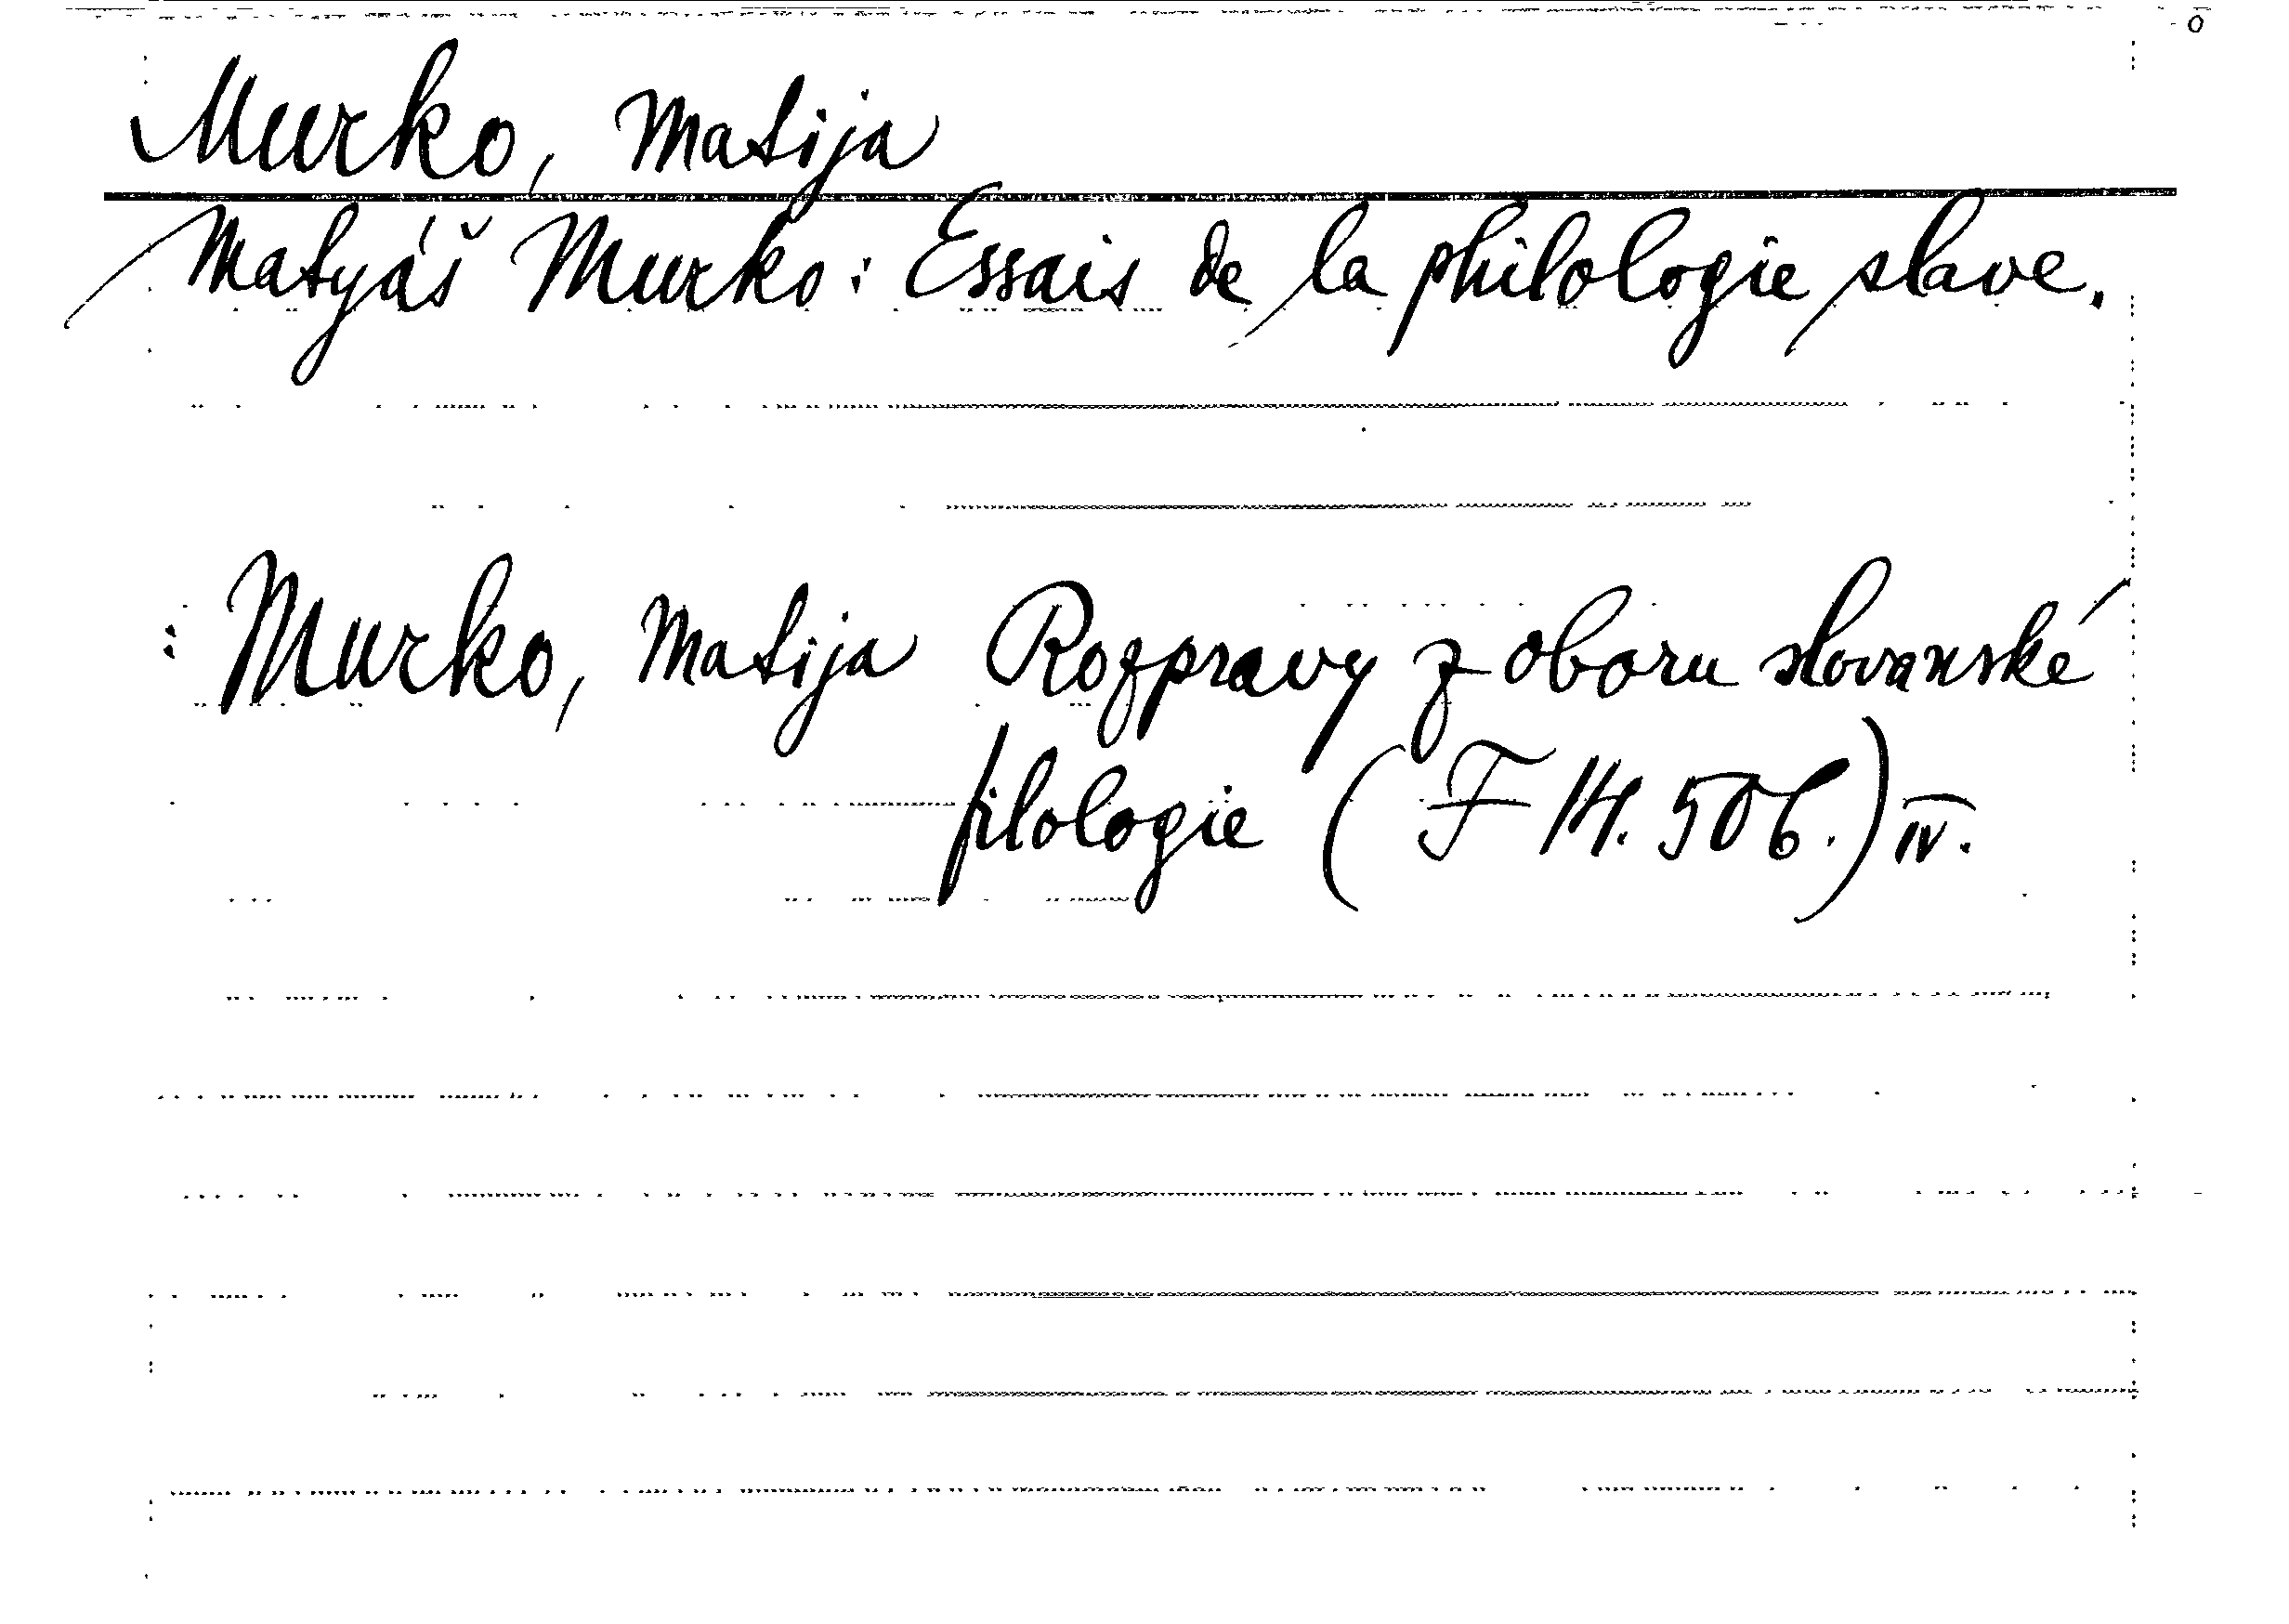 Murko, Matija
Matyáš Murko: Essais de la philologie slave.
: Murko, Matija Rozpravy z oboru slovanské
filologie (F 14.506.) IV.